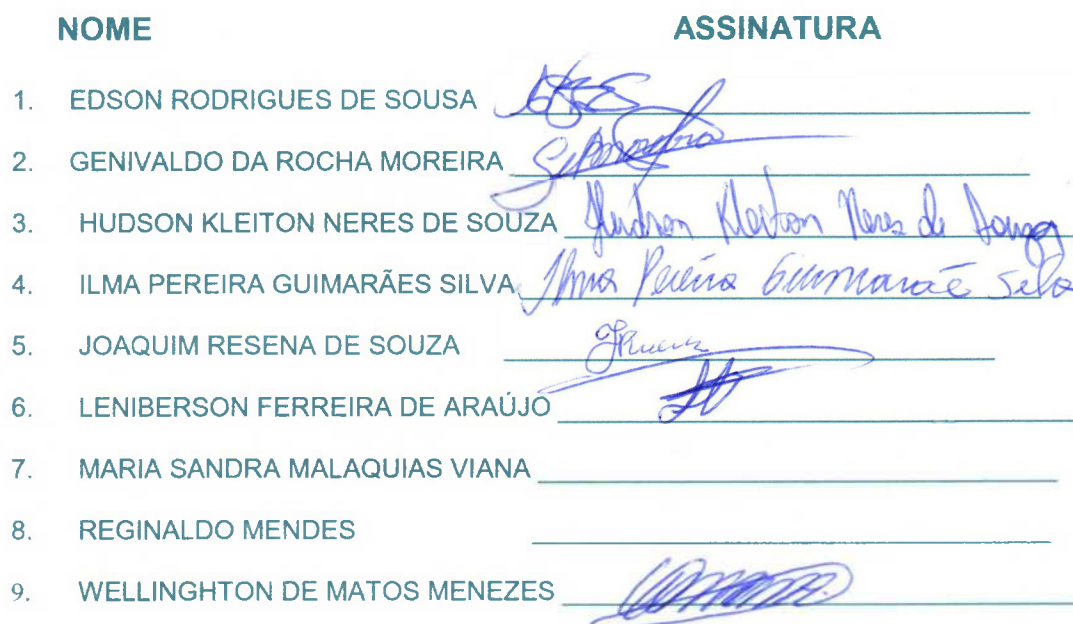 NOME ASSINATURA
1. EDSON RODRIGUES DE SOUSA
2. GENIVALDO DA ROCHA MOREIRA
3. HUDSON KLEITON NERES DE SOUZA Hudson Kleiton Neres de Souza
4. ILMA PEREIRA GUIMARÃES SILVA Ilma Pereira Guimarãe Silva
5. JOAQUIM RESENA DE SOUZA
6. LENIBERSON FERREIRA DE ARAÚJO
7. MARIA SANDRA MALAQUIAS VIANA
8. REGINALDO MENDES
9. WELLINGHTON DE MATOS MENEZES